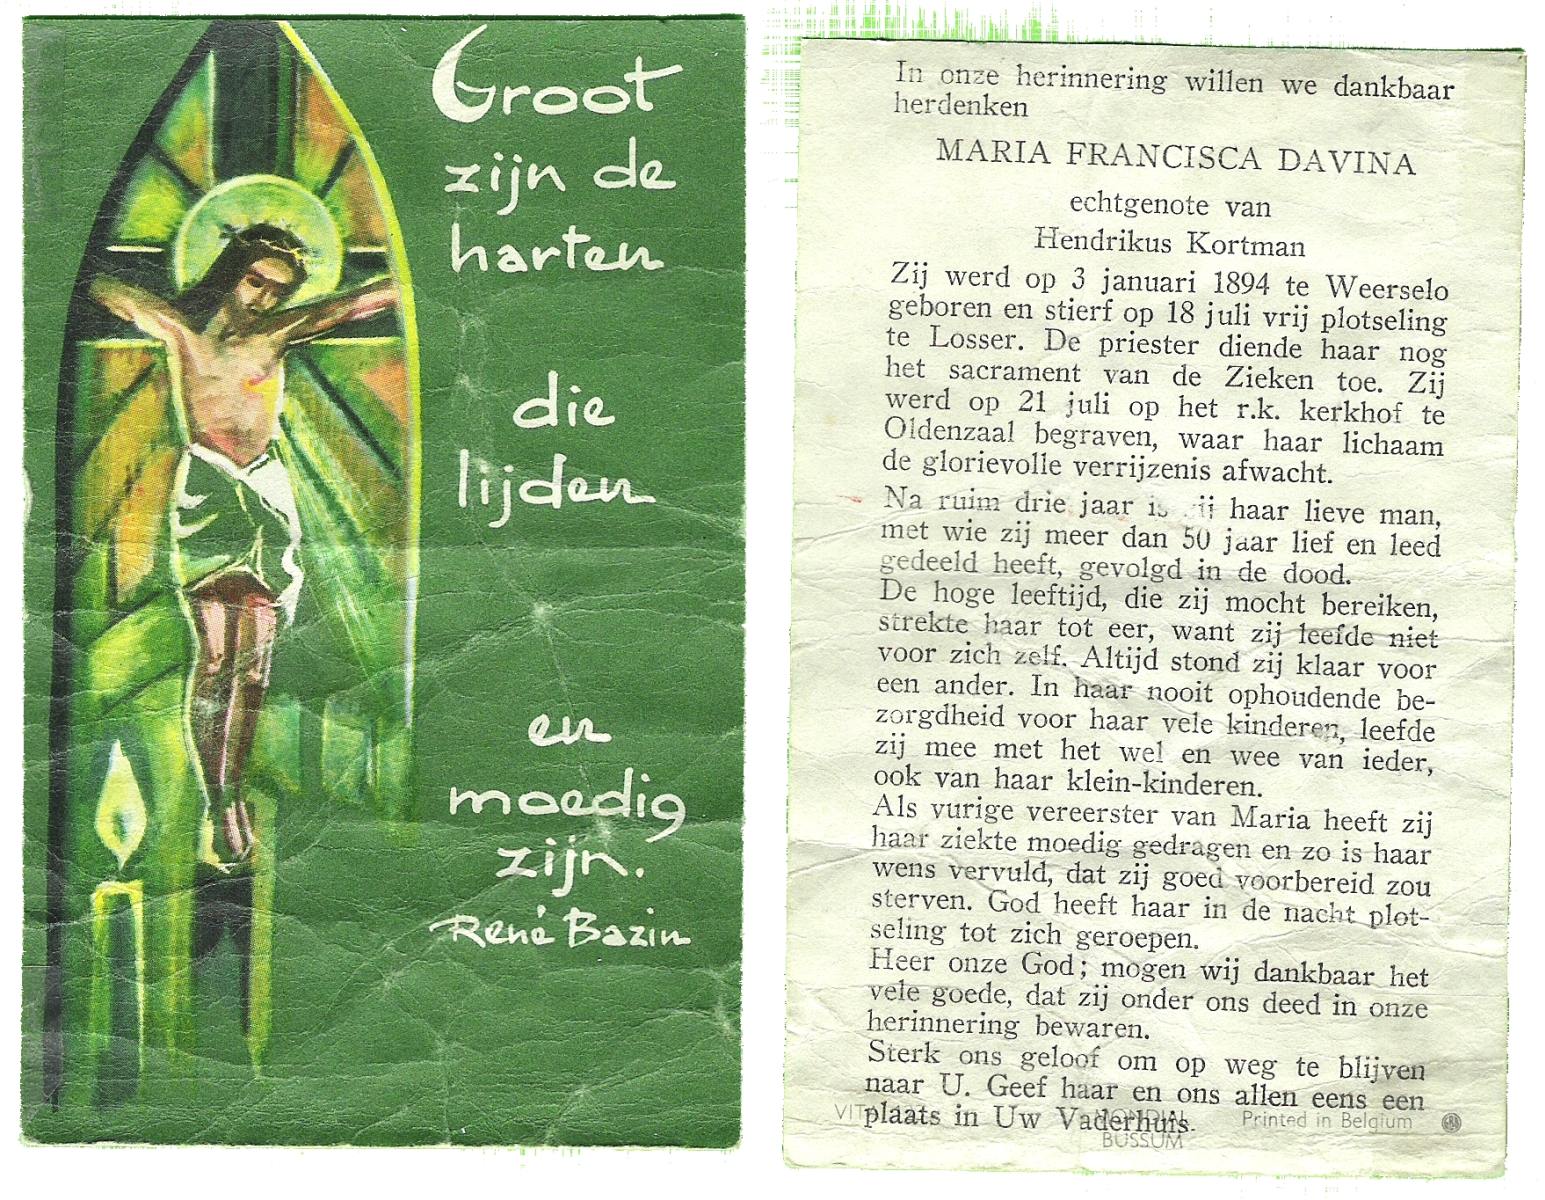 Groot
zijn de
harten
die
lijden
en
moedig
zijn.
René Bazin
In onze herinnering willen we dankbaar
herdenken
MARIA FRANCISCA DAVINA
echtgenote van
Hendrikus Kortman
Zij werd op 3 januari 1894 te Weerselo
geboren en stierf op 18 juli vrij plotseling
te Losser. De priester diende haar nog
het sacrament van de Zieken toe. Zij
werd op 21 juli op het r.k. kerkhof te
Oldenzaal begraven, waar haar lichaam
de glorievolle verrijzenis afwacht.
Na ruim drie jaar is zij haar lieve man,
met wie zij meer dan 50 jaar lief en leed
gedeeld heeft, gevolgd in de dood.
De hoge leeftijd, die zij mocht bereiken,
strekte haar tot eer, want zij leefde niet
voor zich zelf. Altijd stond zij klaar voor
een ander. In haar nooit ophoudende be-
zorgdheid voor haar vele kinderen, leefde
zij mee met het wel en wee van ieder,
ook van haar klein-kinderen.
Als vurige vereerster van Maria heeft zij
haar ziekte moedig gedragen en zo is haar
wens vervuld, dat zij goed voorbereid zou
sterven. God heeft haar in de nacht plot-
seling tot zich geroepen.
Heer onze God; mogen wij dankbaar het
vele goede, dat zij onder ons deed in onze
herinnering bewaren.
Sterk ons geloof om op weg te blijven
naar U. Geef haar en ons allen eens een
plaats in Uw Vaderhuis.
MONDIAL Printed in Belgium
BUSSUM